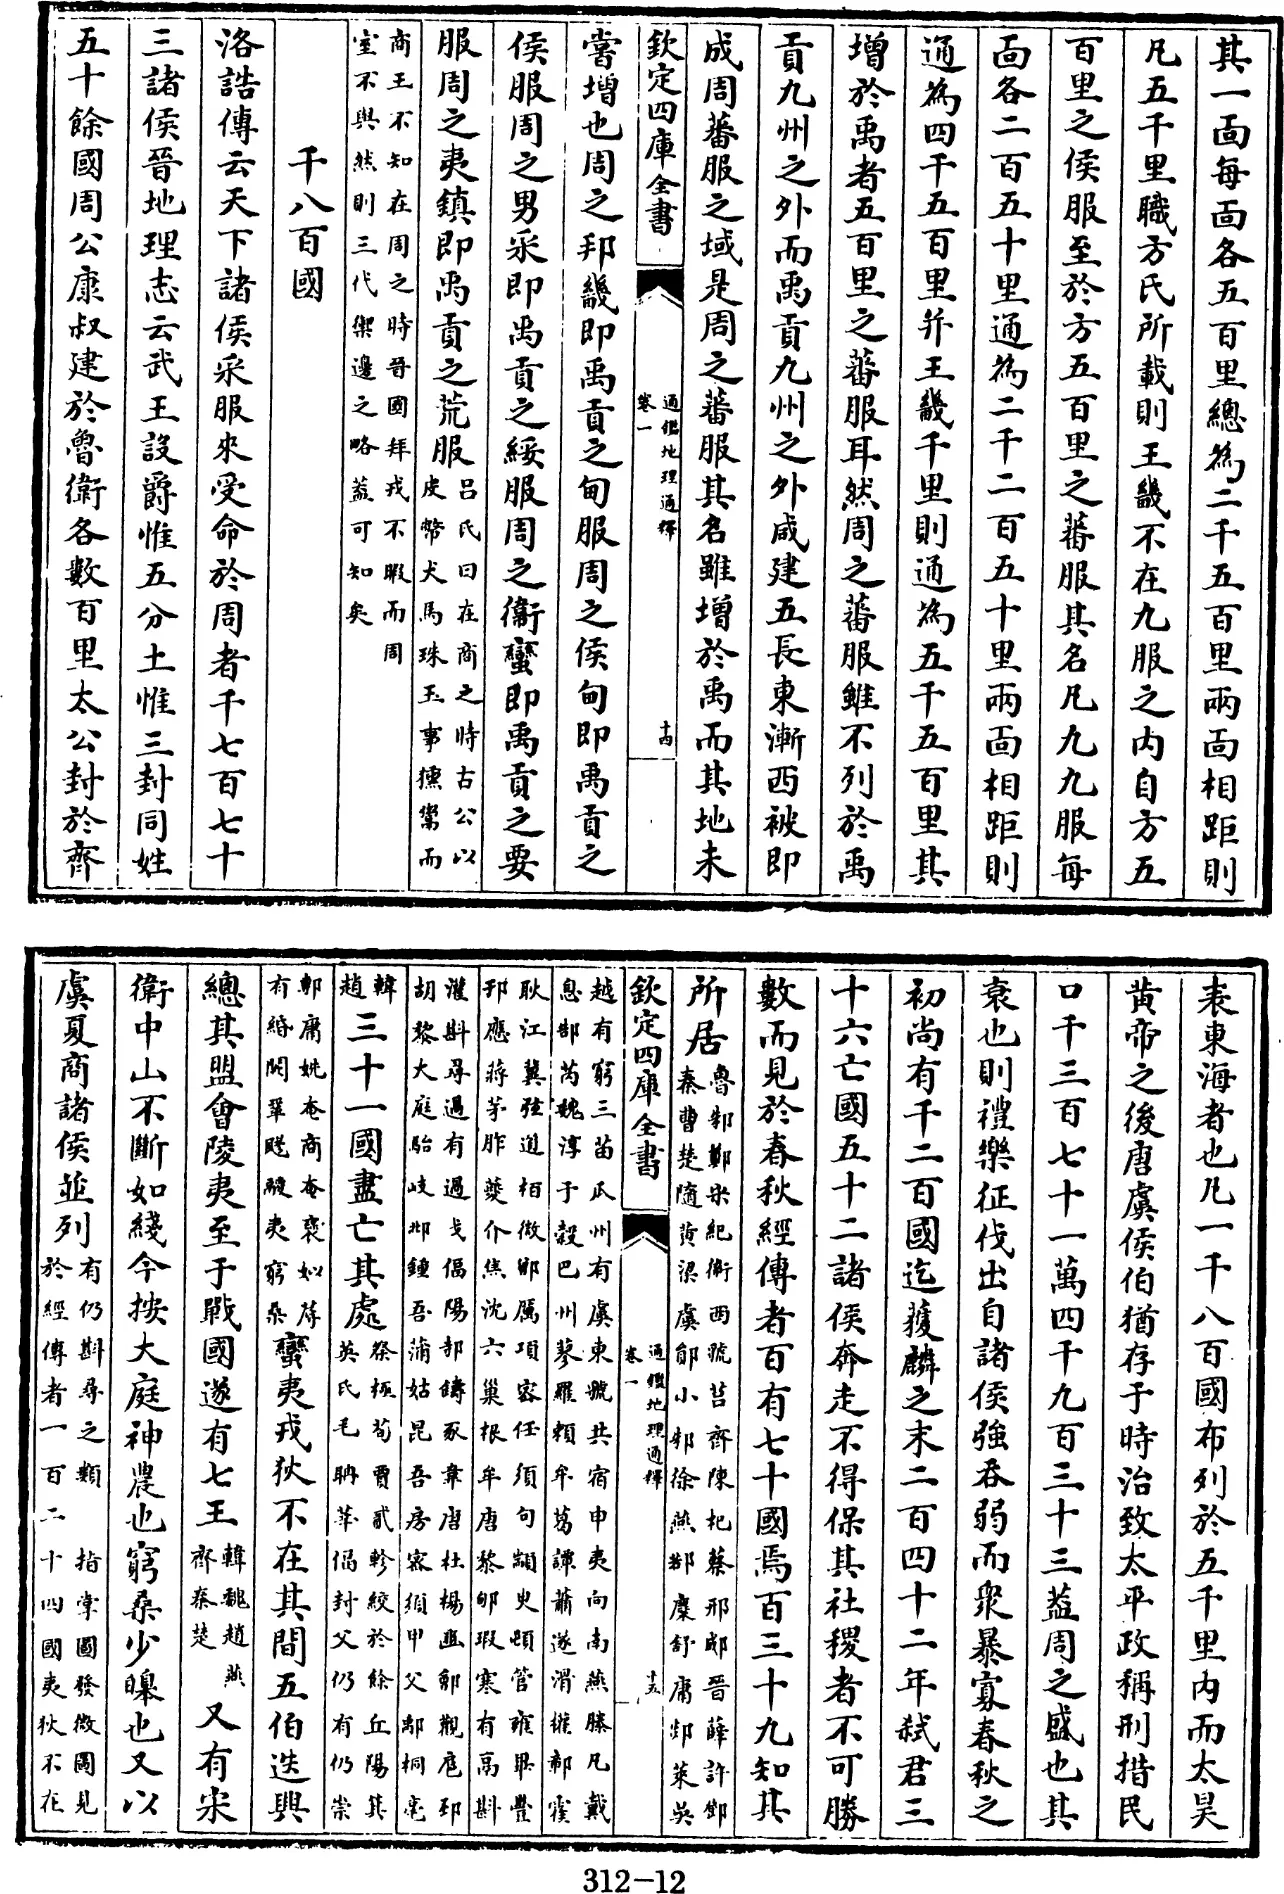 其一面每面各五百里總為二千五百里兩面相距則
凡五千里職方氏所載則王畿不在九服之内自方五
百里之侯服至於方五百里之蕃服其名凡九九服每
面各二百五十里通為二千二百五十里兩面相距則
通為四千五百里并王畿千里則通為五千五百里其
增於禹者五百里之蕃服耳然周之蕃服雖不列於禹
貢九州之外而禹貢九州之外咸建五長東漸西被即
成周蕃服之域是周之蕃服其名雖增於禹而其地未
欽定四庫全書
通鑑地理通釋
卷一
十四
嘗增也周之邦畿即禹貢之甸服周之侯甸即禹貢之
侯服周之男采即禹貢之綏服周之衞蠻即禹貢之要
服周之夷鎮即禹貢之荒服
吕氏曰在商之時古公以
皮幣犬馬珠玉事獯鬻而
商王不知在周之時晉國拜戎不暇而周
室不與然則三代禦邊之略蓋可知矣
千八百國
洛誥傳云天下諸侯采服來受命於周者千七百七十
三諸侯晉地理志云武王設爵惟五分土惟三封同姓
五十餘國周公康叔建於魯衞各數百里太公封於齊
表東海者也凡一千八百國布列於五千里内而太昊
黄帝之後唐虞侯伯猶存于時治致太平政稱刑措民
口千三百七十一萬四千九百三十三蓋周之盛也其
衰也則禮樂征伐出自諸侯強吞弱而衆暴寡春秋之
初尚有千二百國迄獲麟之末二百四十二年弑君三
十六亡國五十二諸侯奔走不得保其社稷者不可勝
數而見於春秋經傳者百有七十國焉百三十九知其
所居
魯邾鄭宋紀衞西虢莒齊陳杞蔡邢郕晉薛許鄧
秦曹楚隨黄梁虞鄖小邾徐燕鄀麋舒庸郯萊吳
欽定四庫全書
通鑑地理通釋
卷一
十五
越有窮三苗瓜州有虞東虢共宿申夷向南燕滕凡戴
息郜芮魏淳于穀巴州蓼羅賴牟葛譚蕭遂滑權鄣霍
耿江冀弦道柏微鄅厲項密任須句顓臾頓管雍畢豐
邘應蔣茅胙夔介焦沈六巢根牟唐黎郇瑕寒有鬲斟
灌斟尋過有過戈偪陽邿鑄豕韋唐杜楊豳鄶觀扈邳
胡黎大庭駘岐邶鍾吾蒲姑昆吾房密須甲父鄅桐亳
韓
趙
三十一國盡亡其處
祭極荀賈貳軫絞於餘丘陽其
英氏毛聃莘偪封父仍有仍崇
鄟庸姚奄商奄褒姒
有緡闕鞏颼鬷夷窮桑
蠻夷戎狄不在其間五伯迭興
總其盟會陵夷至于戰國遂有七王
韓魏趙燕
齊秦楚
又有宋
衞中山不斷如綫今按大庭神農也窮桑少皥也又以
虞夏商諸侯並列
有仍斟尋之類 指掌圖發微圖見
於經傳者一百二十四國夷狄不在
312-12